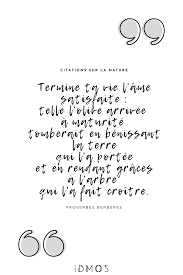 CITATIONS SUR LA NATURE
Termine ta vie l'âme
satisfaite :
telle l'olive arrivée
à maturité
tomberait en bénissant
la terre
qui l'a portée
et en rendant grâces
à l'arbre
qui l'a fait croître.
PROVERBES BERBÈRES
IDMOS